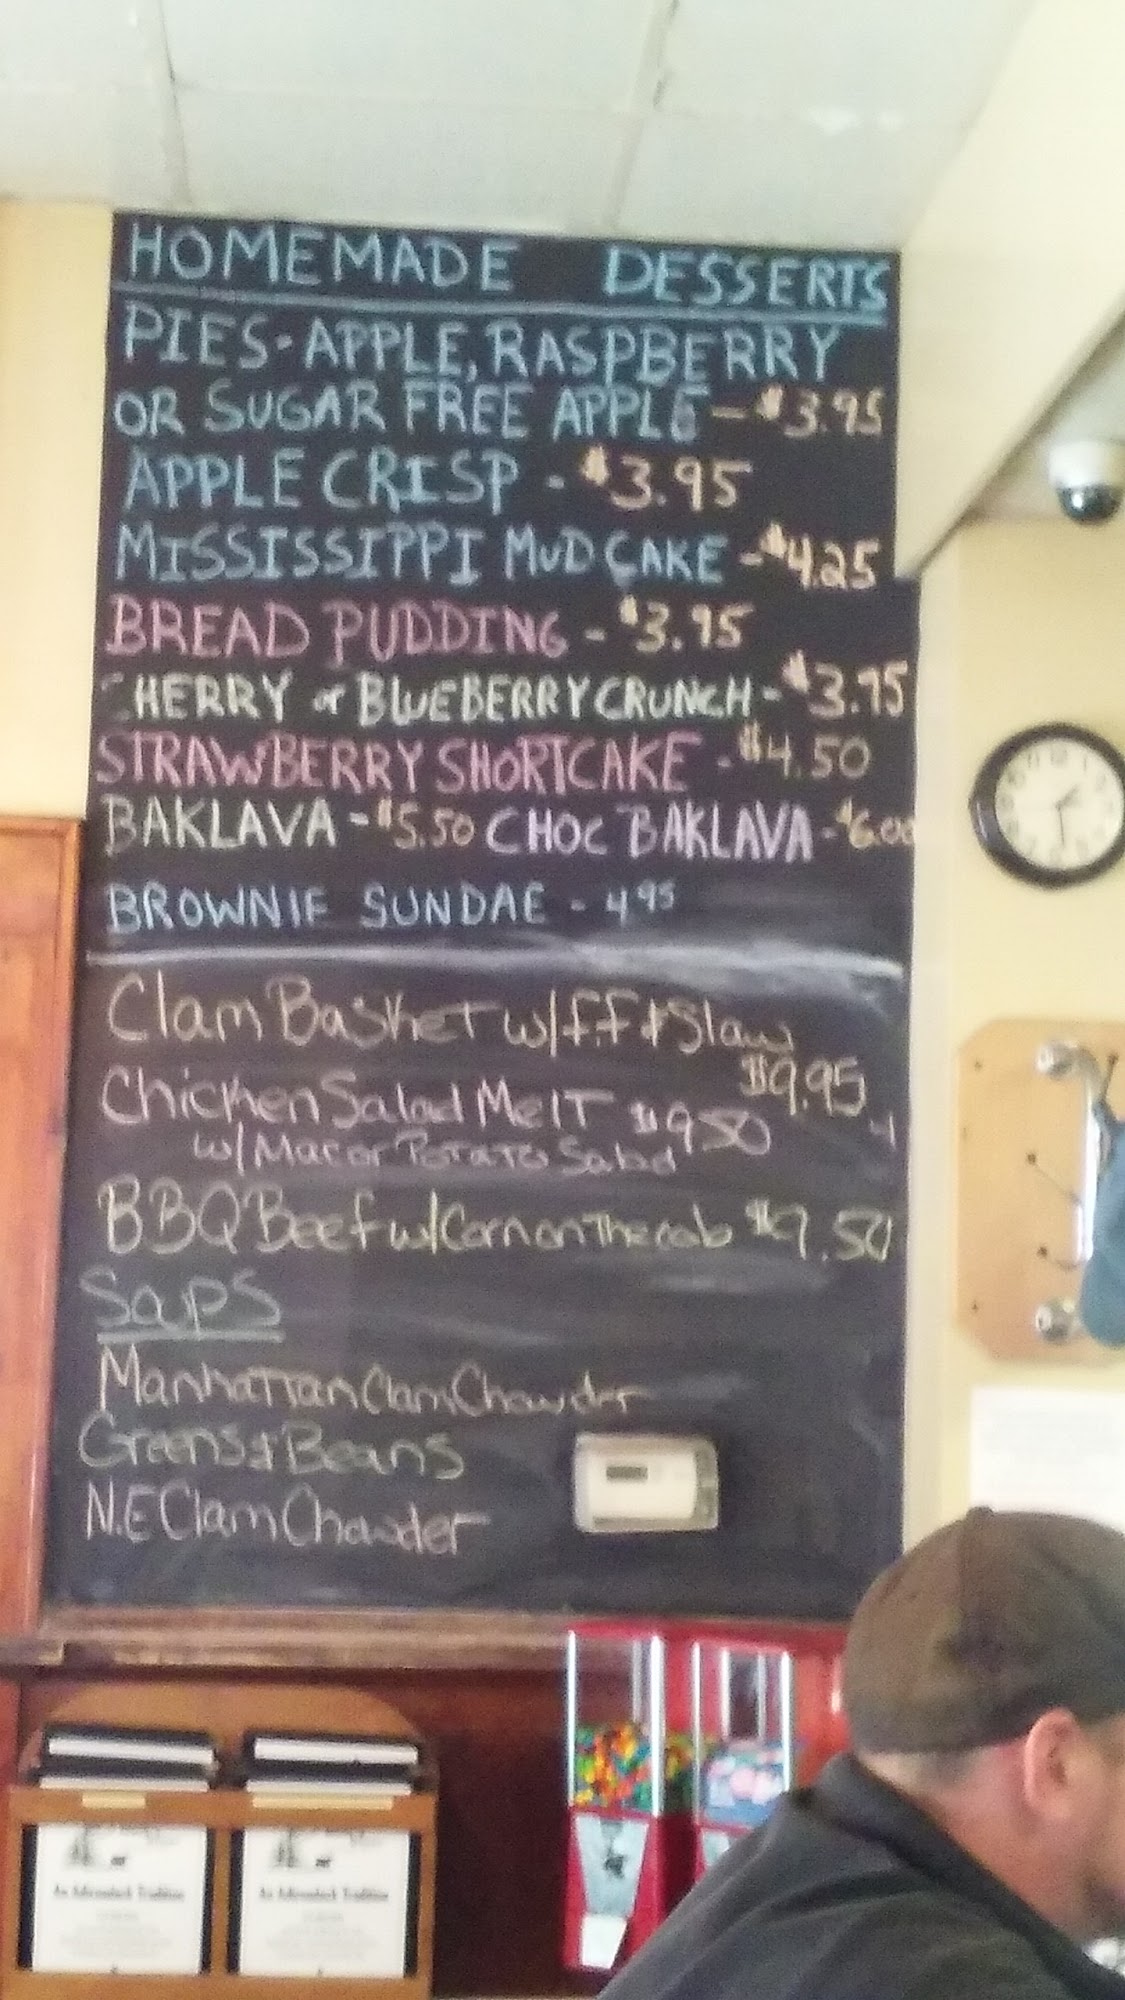 HOMEMADE DESSERTS
PIES-APPLE, RASPBERRY
OR SUGAR FREE APPLE - $3.95
APPLE CRISP - $3.95
MISSISSIPPI MUD CAKE - $4.25
BREAD PUDDING - $3.95
CHERRY or BLUEBERRY CRUNCH - $3.95
STRAWBERRY SHORTCAKE - $4.50
BAKLAVA - $5.50 CHOC BAKLAVA - $6.00
BROWNIE SUNDAE - 4.95
Clam Basket w/f.f & Slaw
$9.95
Chicken Salad Melt $9.50
w/Mac or Potato Salad
BBQ Beef w/Corn on the cob $9.50
Soups
Manhattan Clam Chowder
Greens & Beans
N.E Clam Chowder
An Adirondack Tradition
An Adirondack Tradition